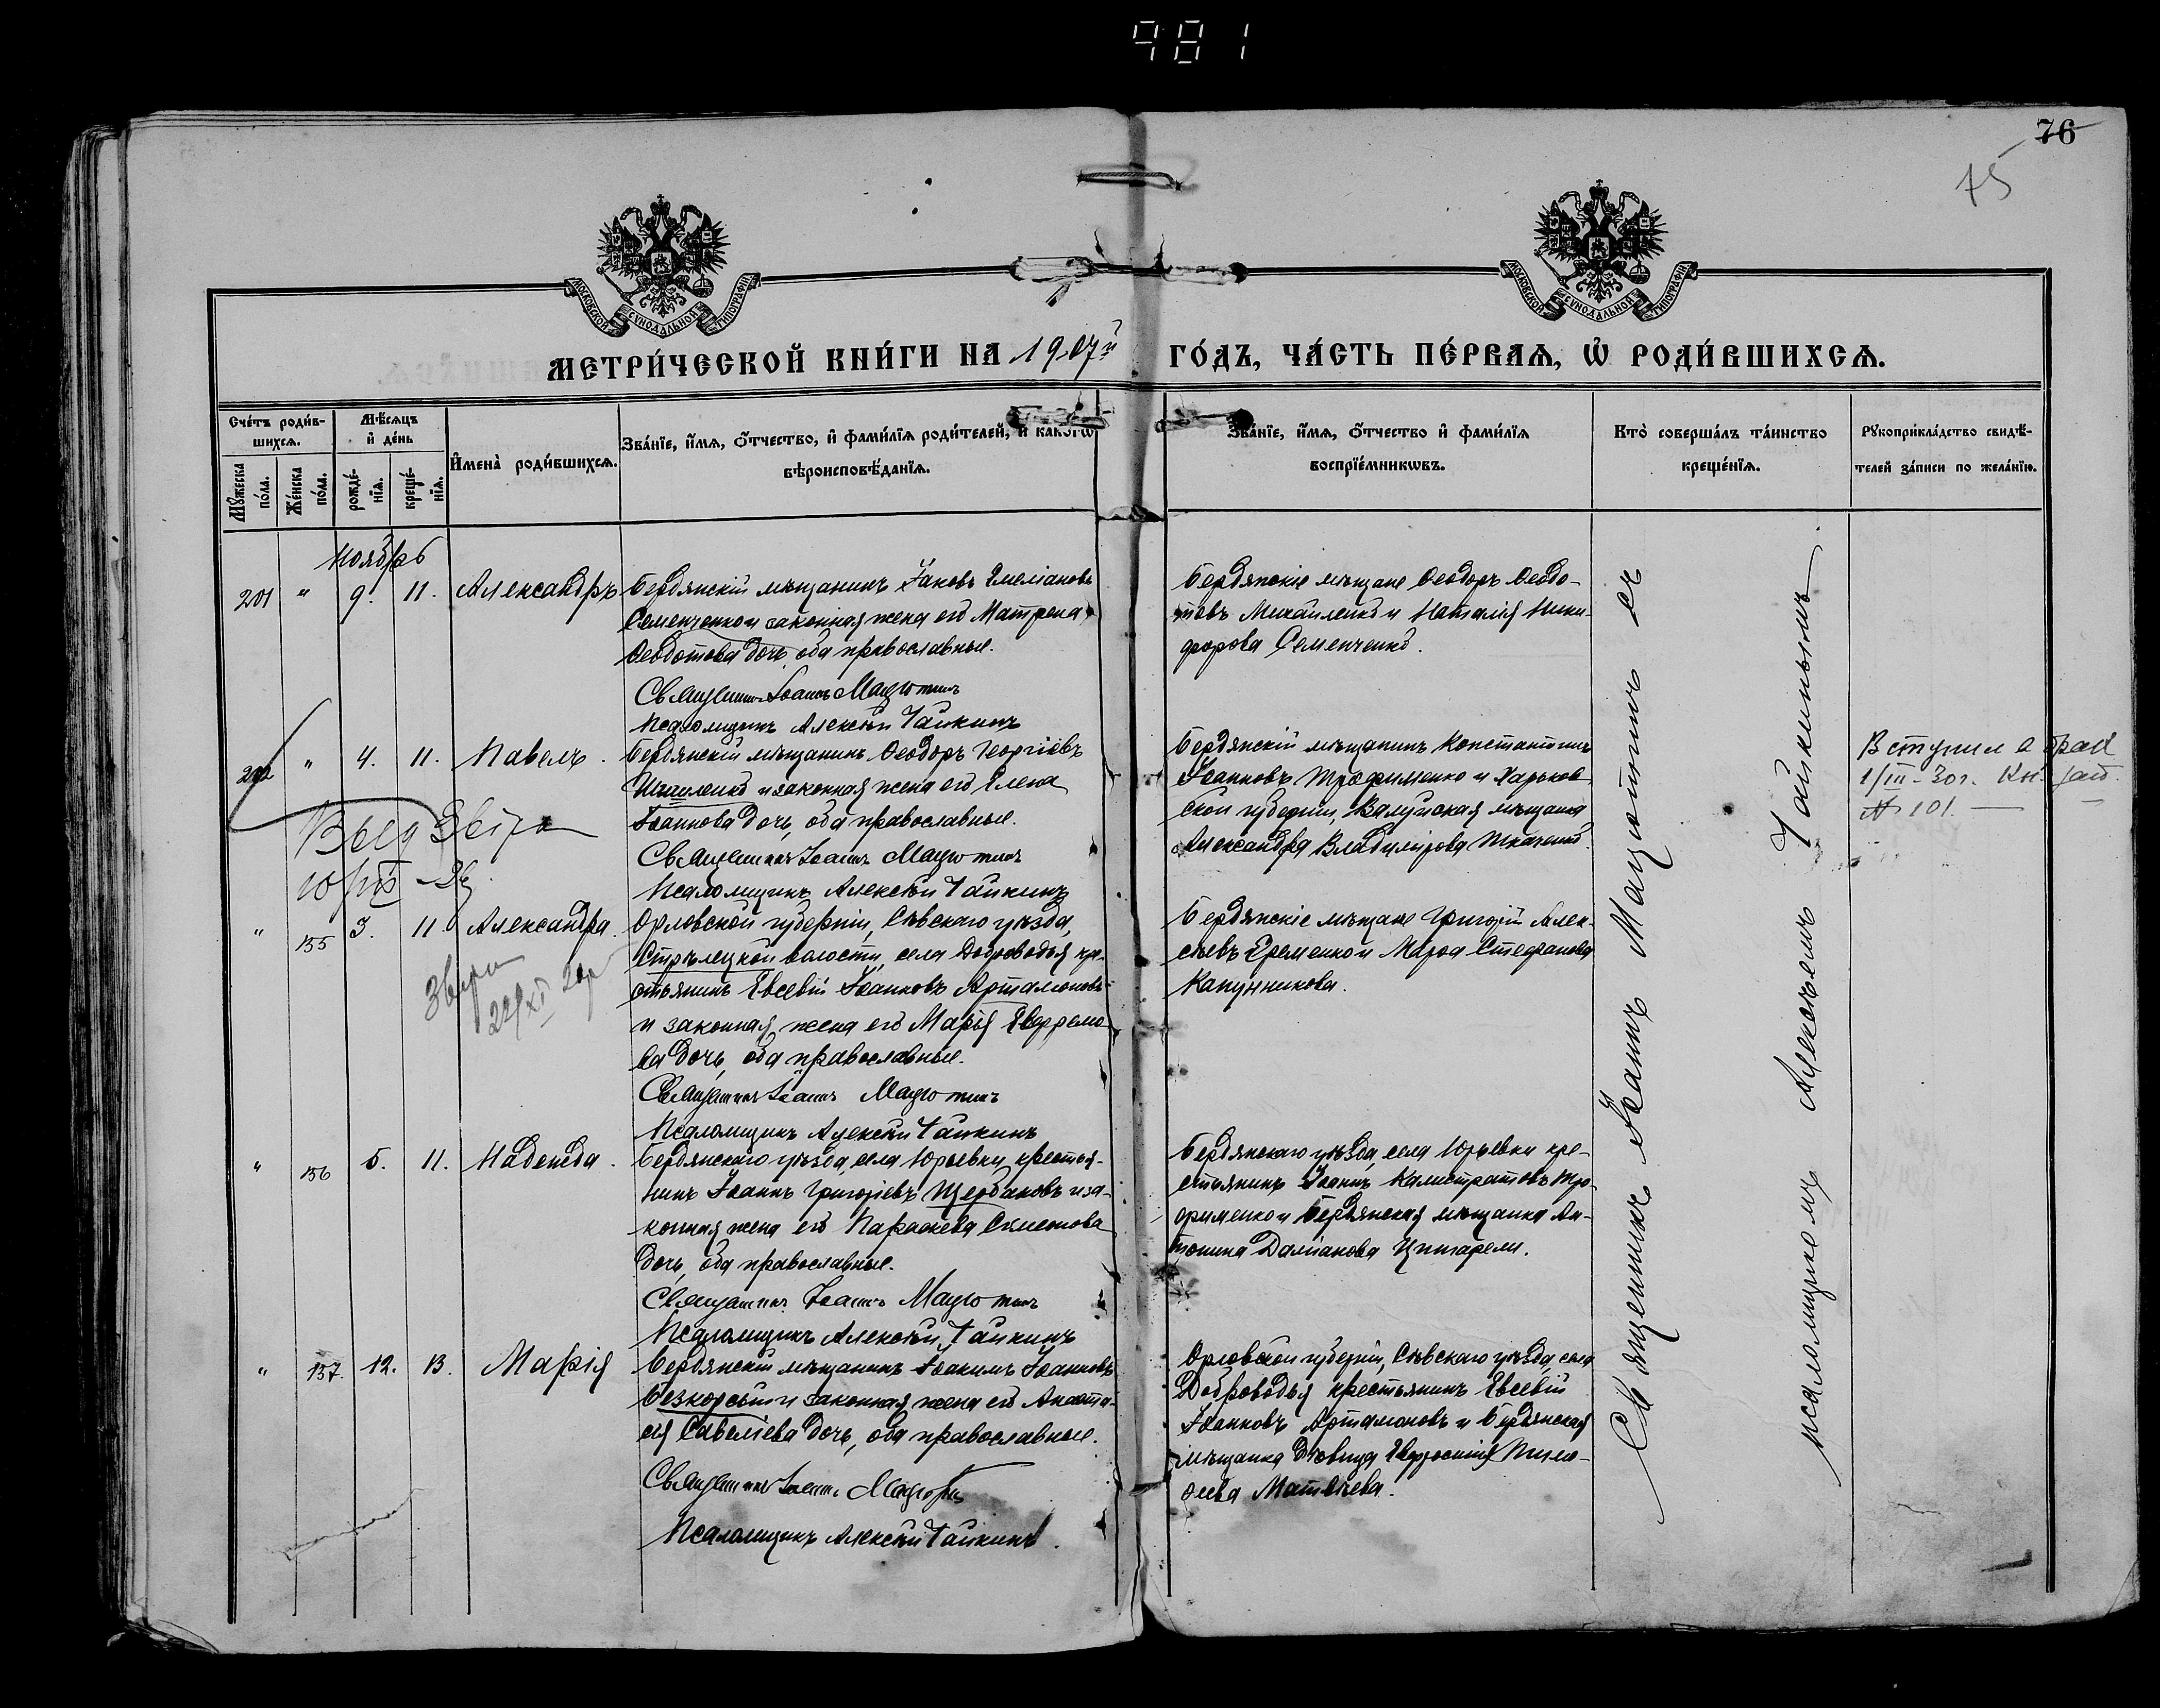 981
76
75
МОСКОВСКОЙ СѴНОДАЛЬНОЙ ТИПОГРАФІИ
МОСКОВСКОЙ СѴНОДАЛЬНОЙ ТИПОГРАФІИ
МЕТРИ́ЧЕСКОЙ КНИ́ГИ НА 1907й ГО́ДЪ, ЧА́СТЬ ПЕ́РВАѦ, Ѡ҆ РОДИ́ВШИХСѦ.
Сче́тъ роди́в-
шихсѧ.
Мѣ́сѧцъ
и҆ де́нь
Мꙋ́жеска по́ла.
Же́нска по́ла.
рожде́-нїѧ.
креще́-нїѧ.
И҆мена̀ роди́вшихсѧ.
Зва́нїе, и҆́мѧ, ѻ҆́тчество, и҆ фами́лїѧ роди́телей, и҆ како́гѡ
вѣроисповѣ́данїѧ.
Зва́нїе, и҆́мѧ, ѻ҆́тчество и҆ фами́лїѧ
воспрїе́мникѡвъ.
Кто̀ соверша́лъ та́инство
креще́нїѧ.
Рꙋкоприкла́дство свидѣ́-
телей за́писи по жела́нїю.
Ноябрь
201 " 9. 11. Александръ
Бердянскій мѣщанинъ Іаковъ Емеліановъ
Семенченко и законная жена его Матрена
Ѳеодотова дочь, оба православные.
Священникъ Іоаннъ Мацютинъ
Псаломщикъ Алексѣй Чайкинъ
Бердянскіе мѣщане Ѳеодоръ Ѳеодо-
товъ Михайленко и Наталія Ники-
форова Семенченко.
202 " 4. 11. Павелъ.
Бердянскій мѣщанинъ Ѳеодоръ Георгіевъ
и законная жена его Елена
Іоаннова дочь, оба православные.
Священникъ Іоаннъ Мацютинъ
Псаломщикъ Алексѣй Чайкинъ
Бердянскій мѣщанинъ Константинъ
Іоанновъ Трофименко и Харьков-
ской губерніи, Валуйская мѣщанка
Александра Владимірова Ткаченко.
Вступил в брак
1/III-30г. Кн. зап.
№ 101.
" 155 3. 11. Александра.
Орловской губерніи, Сѣвскаго уѣзда,
Стрѣлецкой волости, села Доброводья кре-
стьянинъ Евсевій Іоанновъ Артамоновъ
и законная жена его Марія Евфремо-
ва дочь, оба православные.
Священникъ Іоаннъ Мацютинъ
Псаломщикъ Алексѣй Чайкинъ
Бердянскіе мѣщане Григорій Алек-
сѣевъ Еременко и Марѳа Стефанова
Капунникова.
22/XI
" 156 5. 11. Надежда.
Бердянскаго уѣзда, села Юрьевки, крестья-
нинъ Іоаннъ Григоріевъ Щербаковъ и за-
конная жена его Параскева Симеонова
дочь, оба православные.
Священникъ Іоаннъ Мацютинъ
Псаломщикъ Алексѣй Чайкинъ
Бердянскаго уѣзда, села Юрьевки кре-
стьянинъ Іоаннъ Калистратовъ Тро-
фименко и Бердянская мѣщанка Ан-
тонина Даміанова
" 157. 12. 13. Марія
Бердянскій мѣщанинъ Іоакимъ Іоанновъ
и законная жена его Анаста-
сія Савеліева дочь, оба православные.
Священникъ Іоаннъ Мацютинъ
Псаломщикъ Алексѣй Чайкинъ.
Орловской губерніи, Сѣвскаго уѣзда, села
Доброводья крестьянинъ Евсевій
Іоанновъ Артамоновъ и Бердянская
мѣщанка дѣвица Евфросинія Тимо-
ѳеева Матвѣева.
Священникъ Іоаннъ Мацютинъ съ
псаломщикомъ Алексѣемъ Чайкинымъ